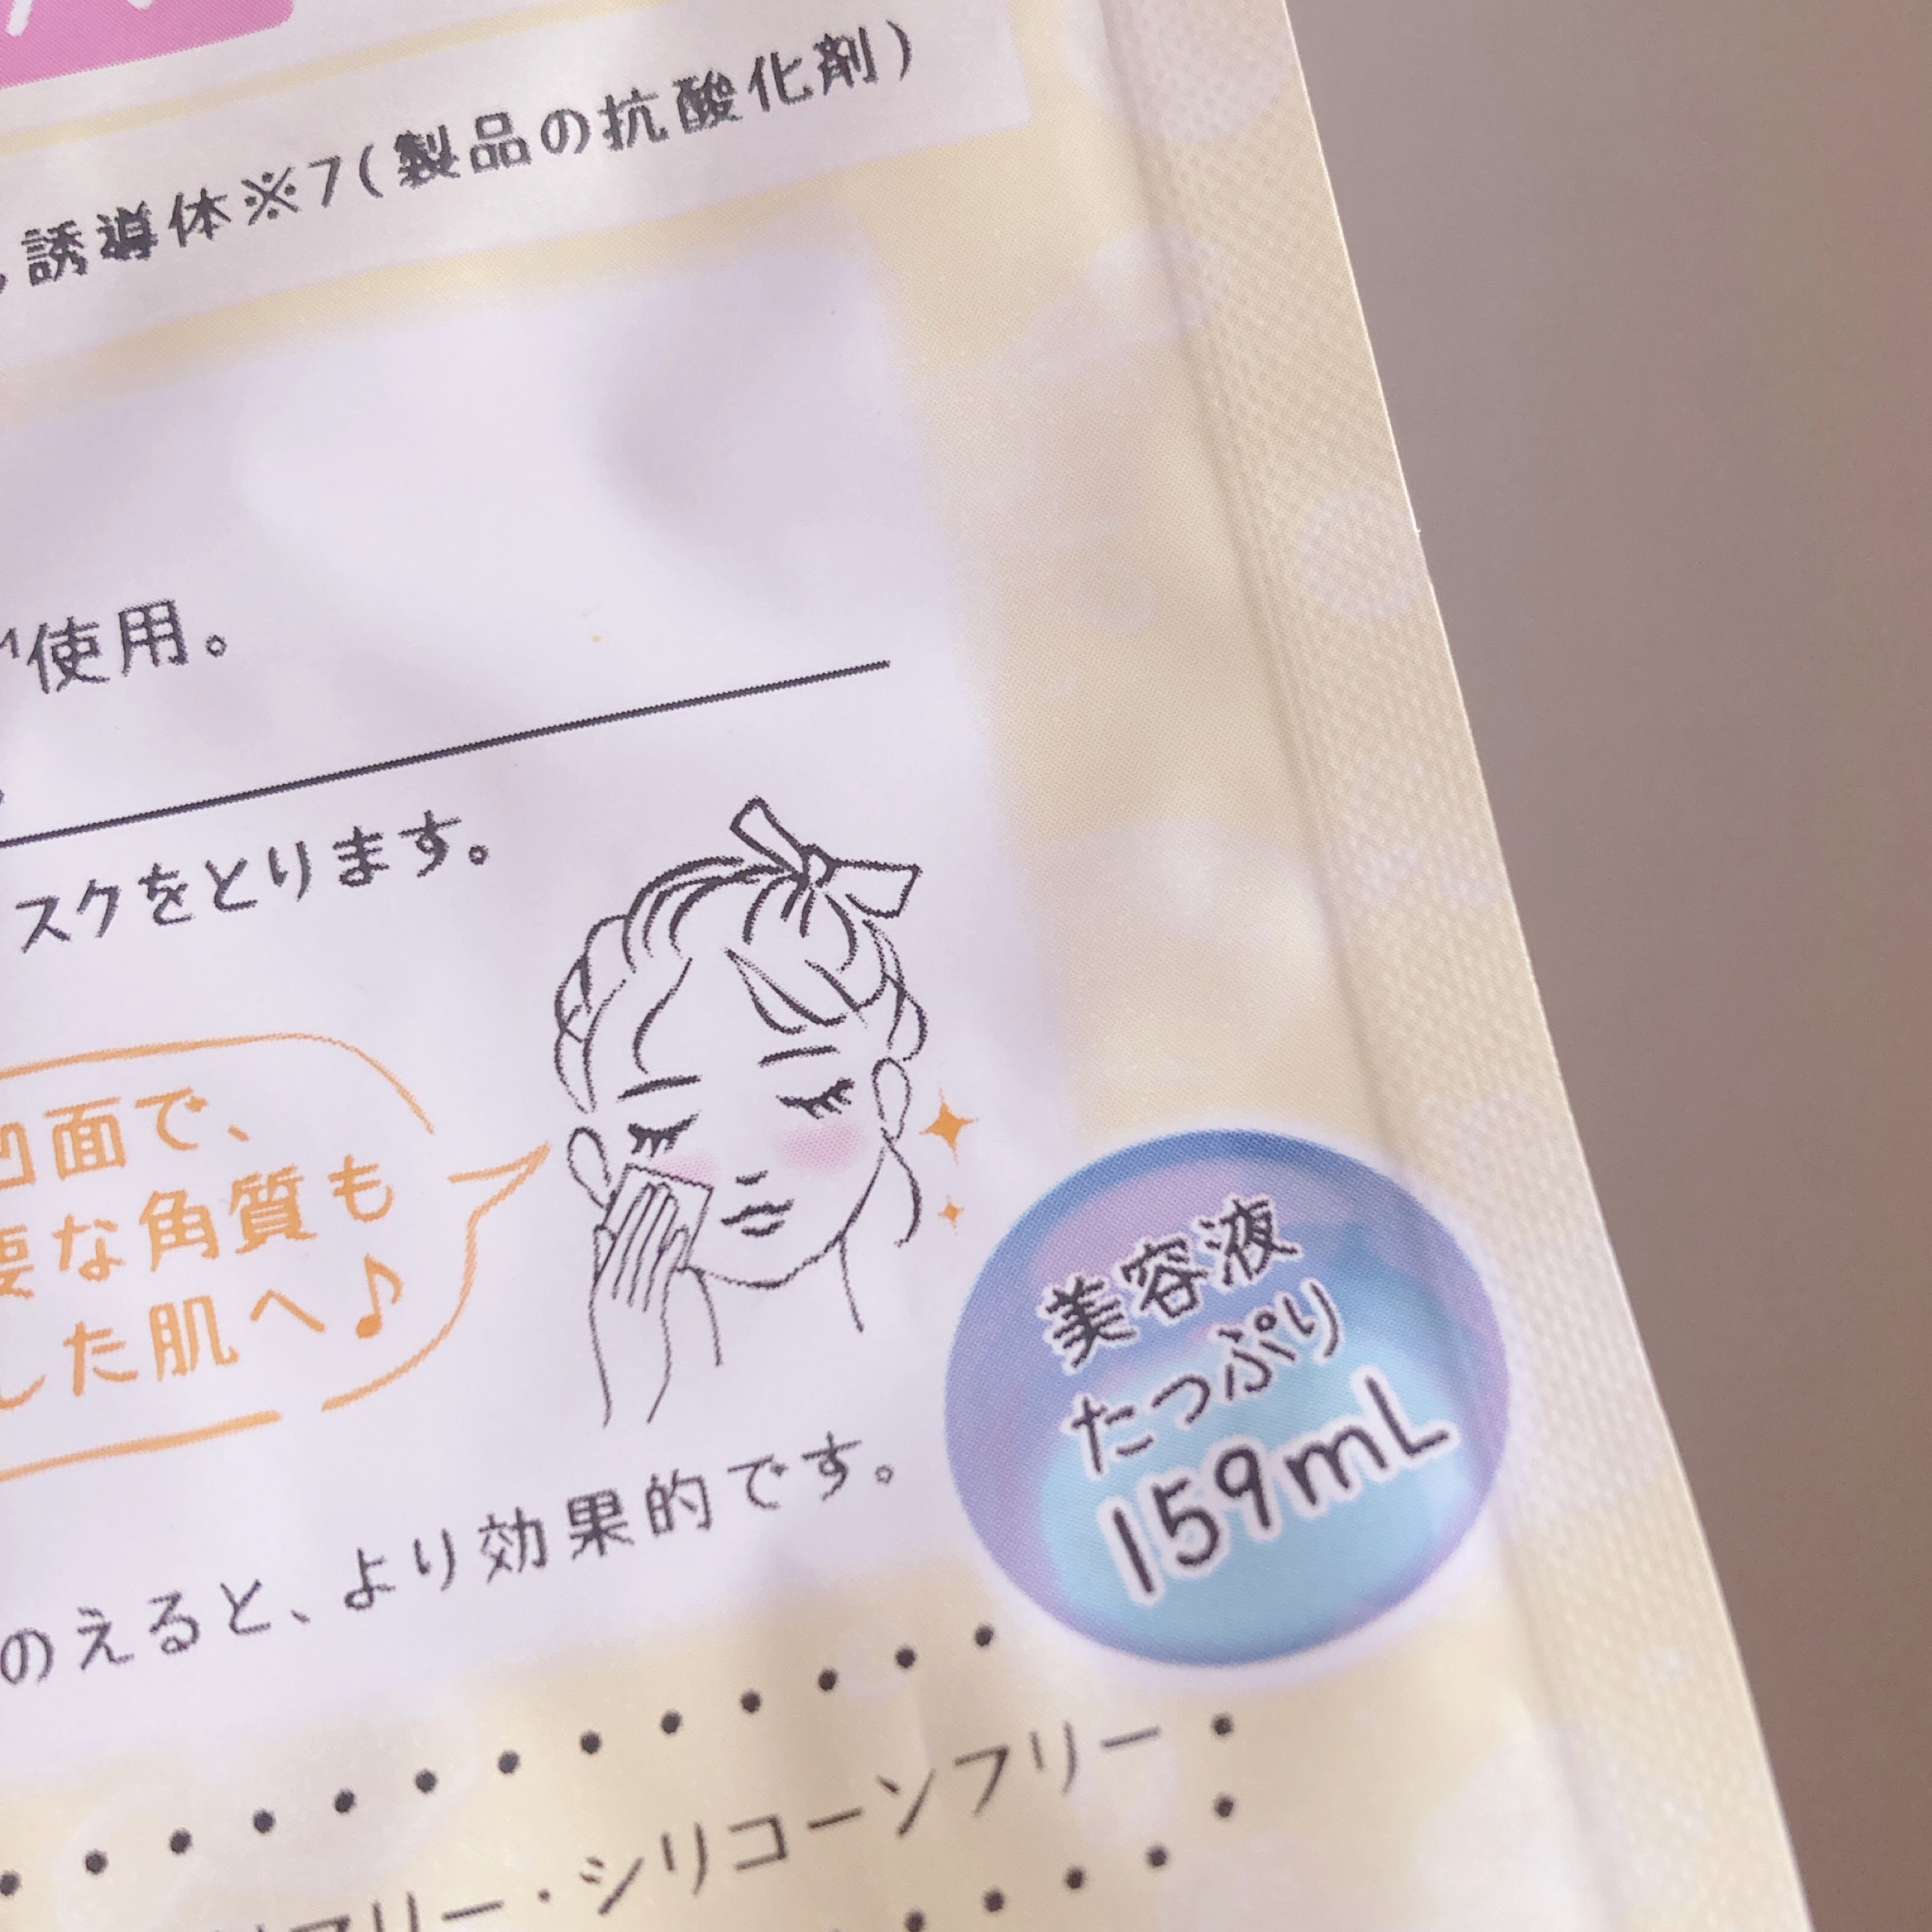 誘導体※7(製品の抗酸化剤)
使用。
スクをとります。
凹面で、
要な角質も
した肌へ♪
美容液
たっぷり
159mL
のえると、より効果的です。
フリー・シリコーンフリー